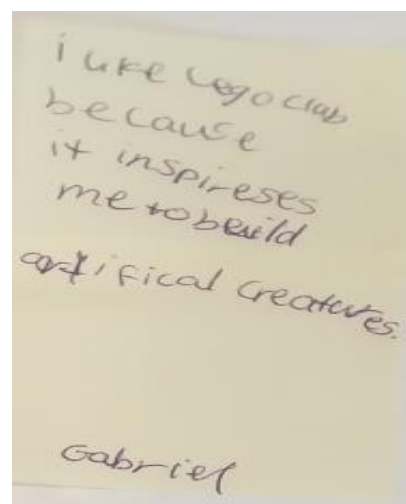 i like Lego club
because
it inspireses
me to build
artifical creatures.
Gabriel